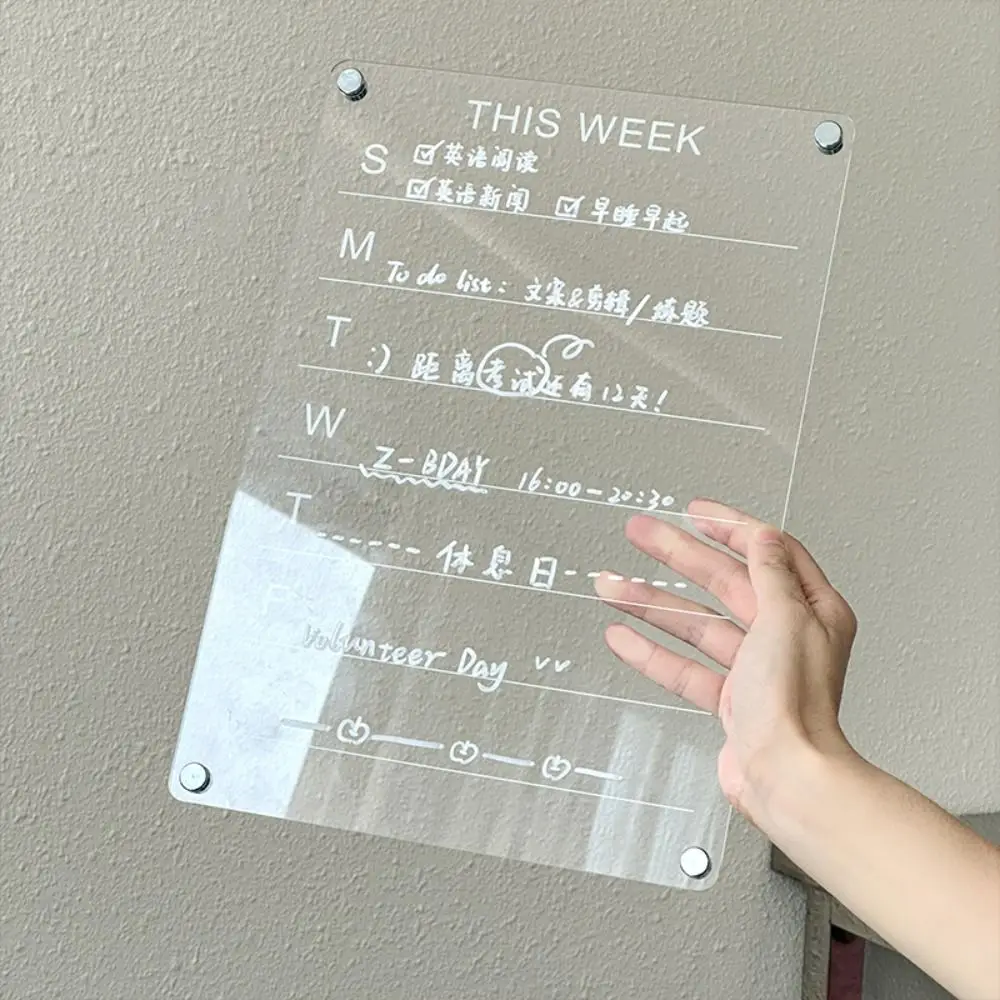 THIS WEEK
S ☑英语阅读
☑英语新闻 ☑早睡早起
M
To do list: 文案&剪辑/练题
T
:) 距离考试还有12天!
W
Z-BDAY 16:00-20:30
T
------休息日------
F
Volunteer Day vv